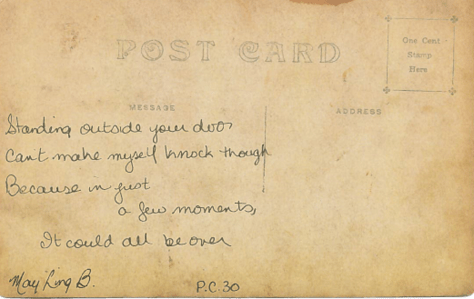 POST CARD
One Cent
Stamp
Here
MESSAGE
ADDRESS
Standing outside your door
Can't make myself knock though
Because in just
a few moments,
It could all be over
May Ling B.
P.C.30